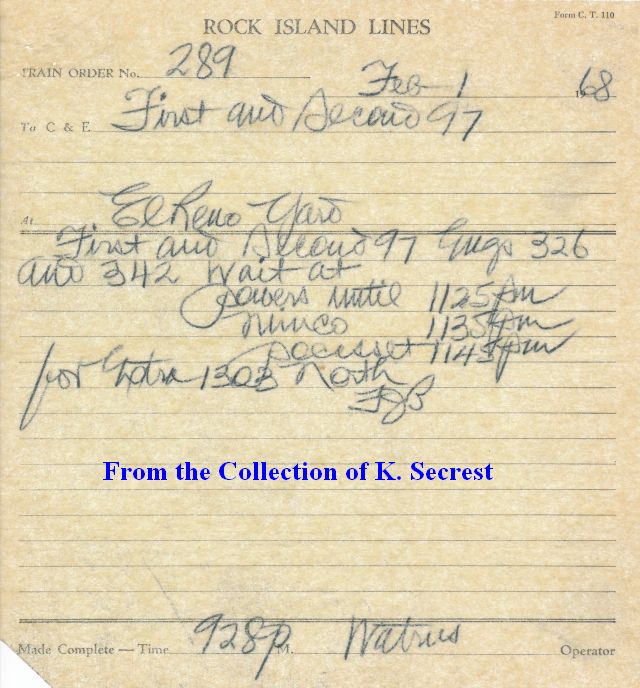 Form C. T. 110
ROCK ISLAND LINES
TRAIN ORDER No. 289
Feb 1 1968
To C & E First and Second 97
At El Reno Yard
First and Second 97 Engs 326
and 342 wait at
Powers until 1125pm
Minco 1135pm
Pocasset 1145pm
for Extra 1303 North
FJB
From the Collection of K. Secrest
Made Complete — Time 928p M. Watrus Operator